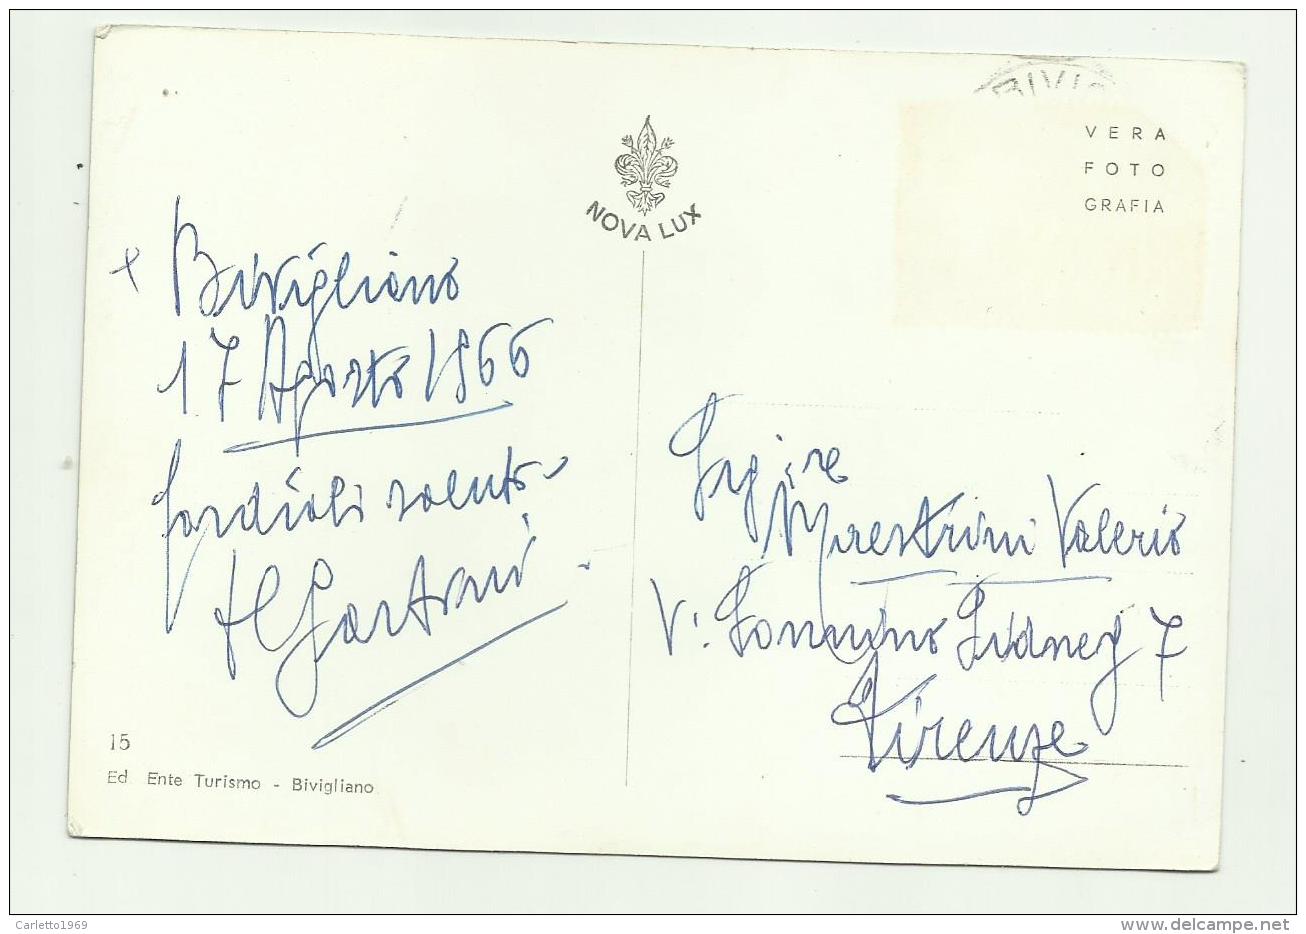 BIVIG
VERA
FOTO
GRAFIA
NOVA LUX
+ Bivigliano
17 Agosto 1966
Cordiali saluti
Sig.re
Maestrini Valerio
V. Sonnino Sidney 7
Firenze
15
Ed Ente Turismo - Bivigliano
Carletto1969
www.delcampe.net